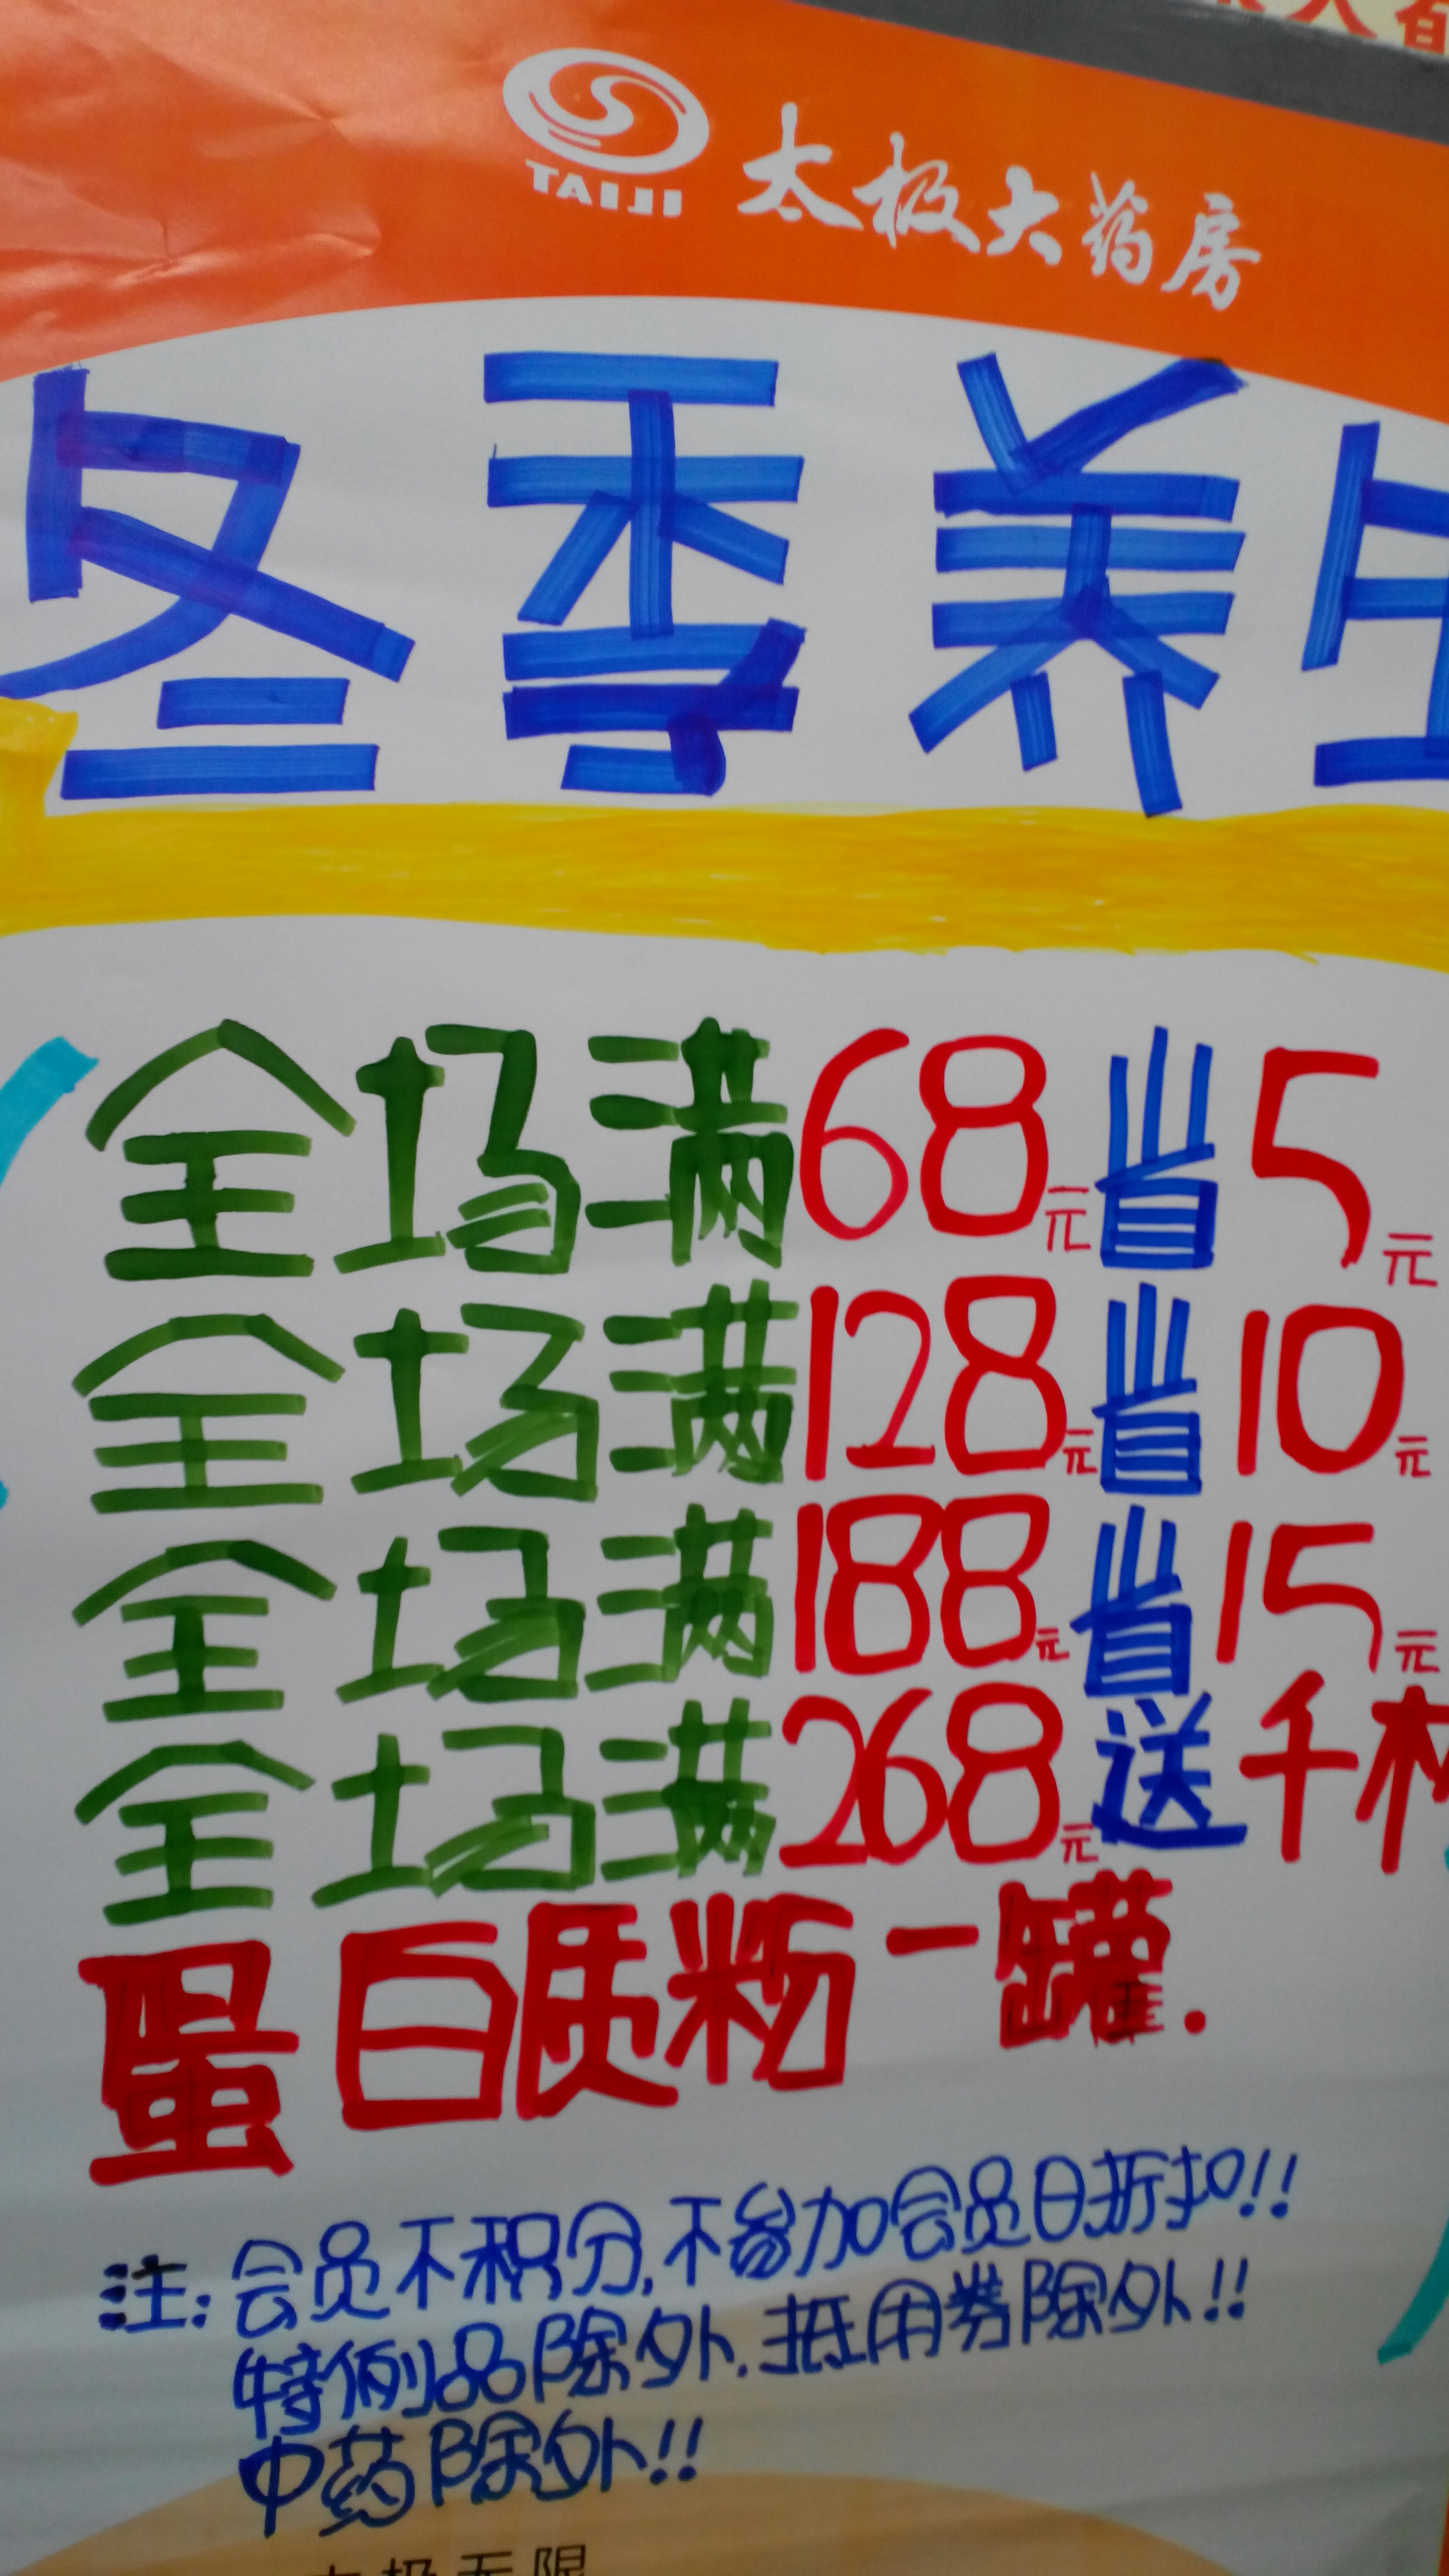 TAIJI 太极大药房
冬季养生
全场满68元省5元
全场满128元省10元
全场满188元省15元
全场满268元送千林
蛋白质粉一罐.
注:会员不积分,不参加会员日折扣!!
特例品除外.抵用券除外!!
中药除外!!
太极无限